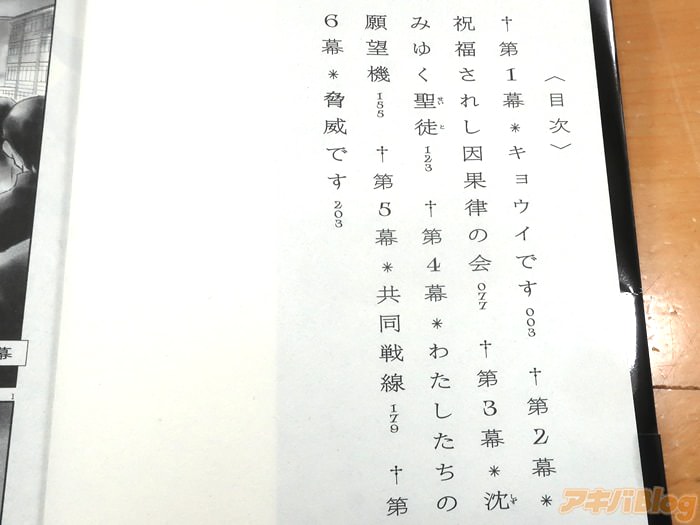 〈目次〉
†第1幕＊キョウイです 003 †第2幕＊
祝福されし因果律の会 077 †第3幕＊沈
みゆく聖徒 123 †第4幕＊わたしたちの
願望機 155 †第5幕＊共同戦線 179 †第
6幕＊脅威です 203
アキバBlog